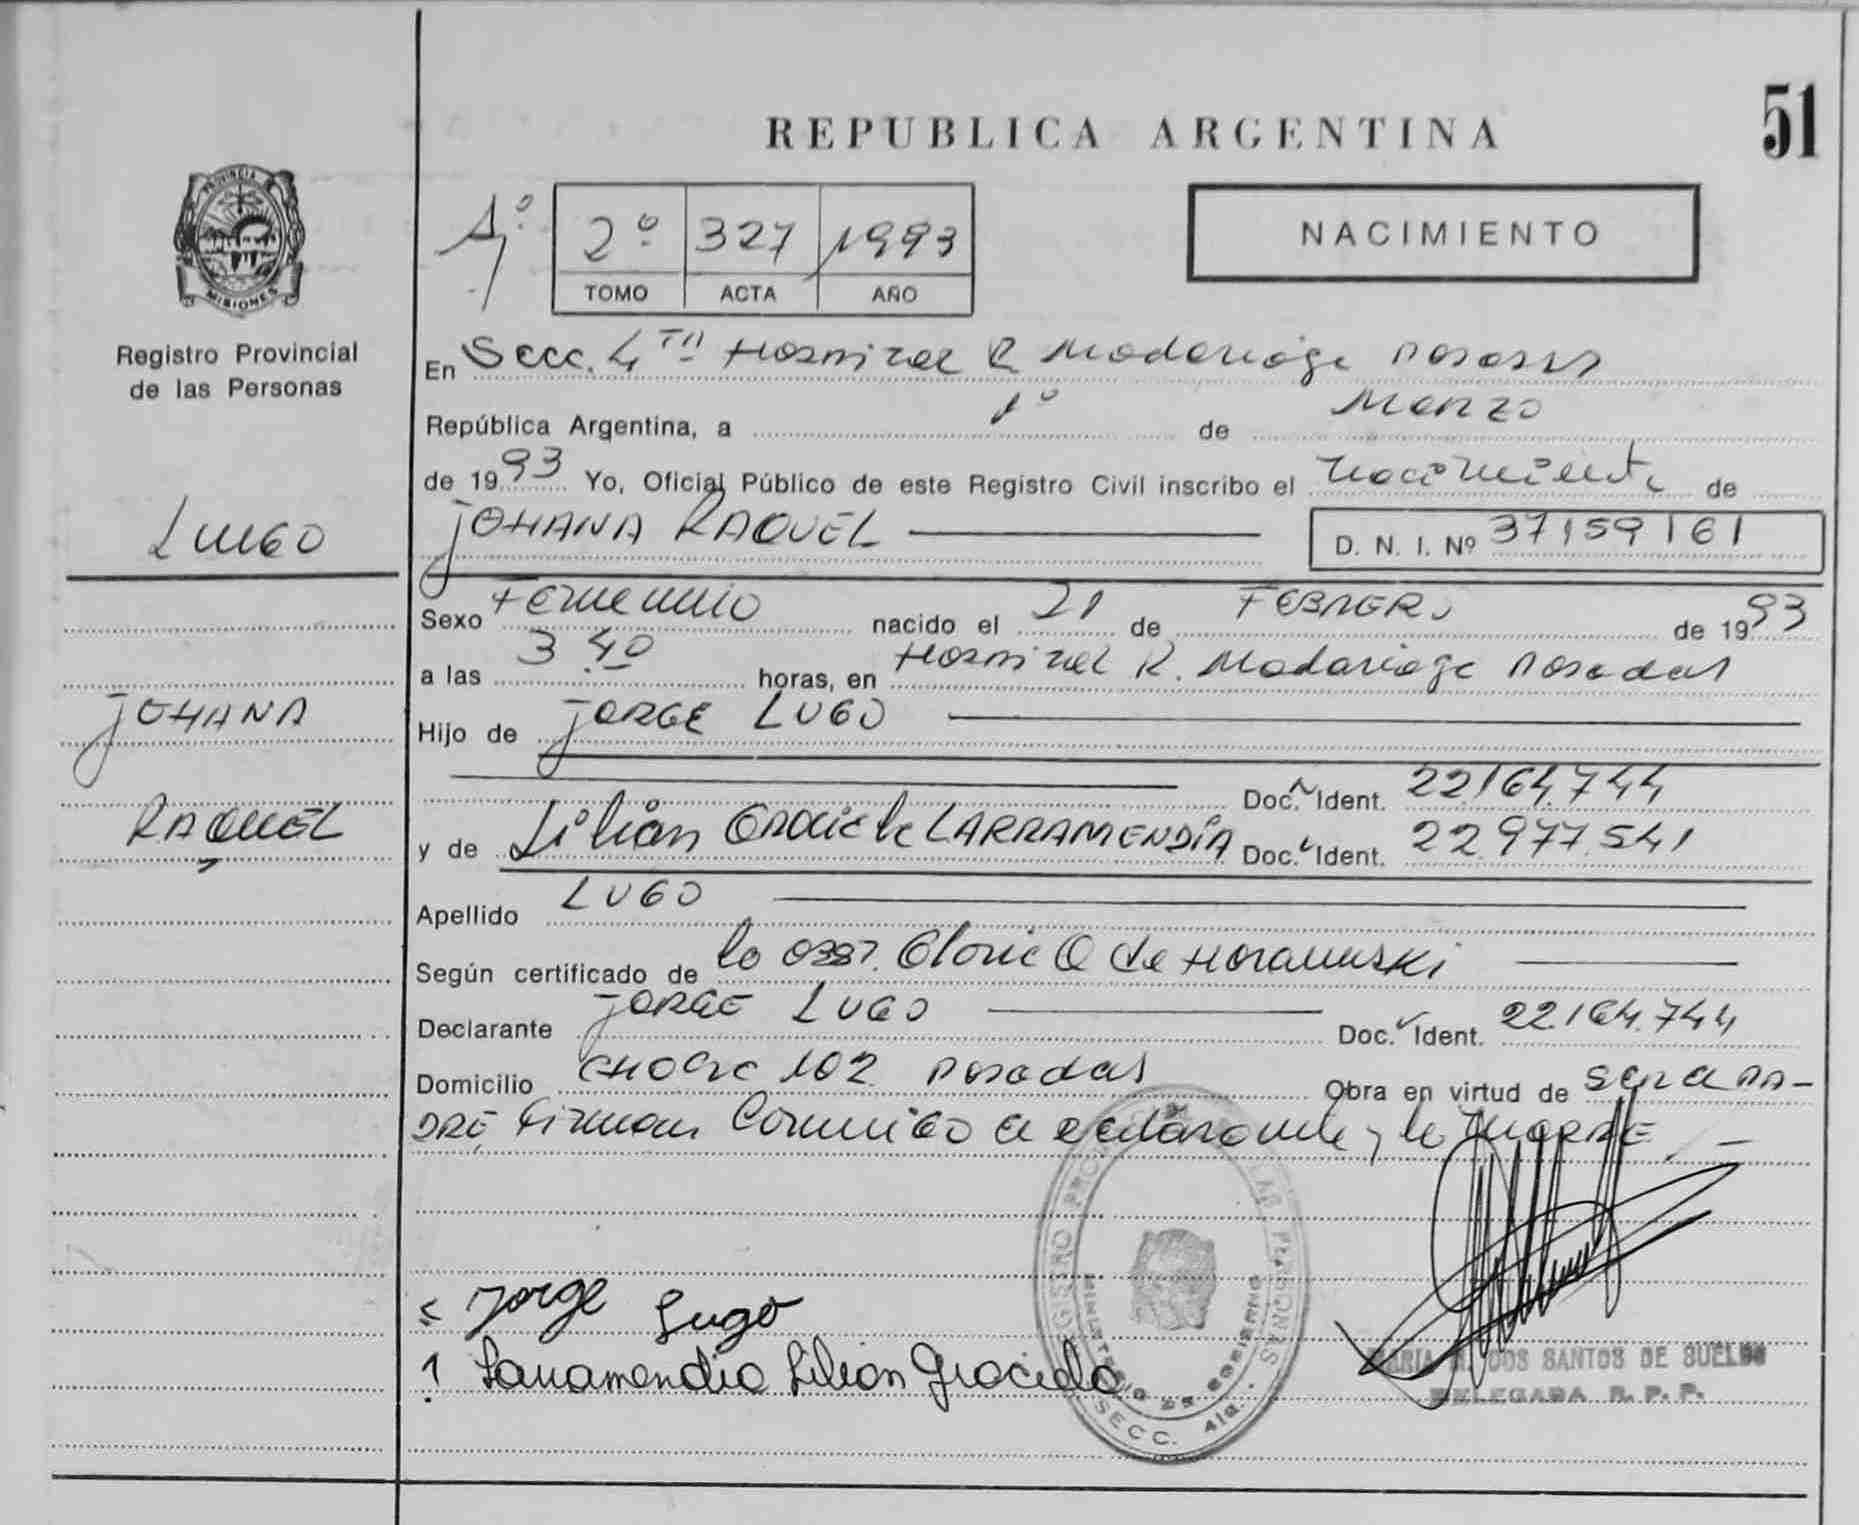 51
REPUBLICA ARGENTINA
PROVINCIA DE
MISIONES
Registro Provincial
de las Personas
Aº 2º 327 1993
TOMO ACTA AÑO
NACIMIENTO
En Secc. 4TA Hospital R Madariaga Posadas
República Argentina, a 1º de Marzo
de 1993 Yo, Oficial Público de este Registro Civil inscribo el nacimiento de
LUGO
JOHANA RAQUEL
D. N. I. Nº 37159161
Sexo Femenino nacido el 21 de FEBRERO de 1993
a las 3 40 horas, en Hospital R. Madariaga Posadas
JOHANA
Hijo de JORGE LUGO
Doc. Ident. 22.164.744
RAQUEL
y de Lilian Graciela LARRAMENDIA Doc. Ident. 22.977.541
Apellido LUGO
Según certificado de la Obst. Gloria Q de
Declarante JORGE LUGO Doc. Ident. 22.164.744
Domicilio 102 Posadas Obra en virtud de ser el PA-
DRE Firman Conmigo el declarante y la MADRE
Jorge Lugo
Larramendia Lilian Graciela
REGISTRO PROV LAS PERSONAS
MINISTERIO DE GOBIERNO
SECC. 4ta.
MARIA DOS SANTOS DE SUELDO
DELEGADA R. P. P.